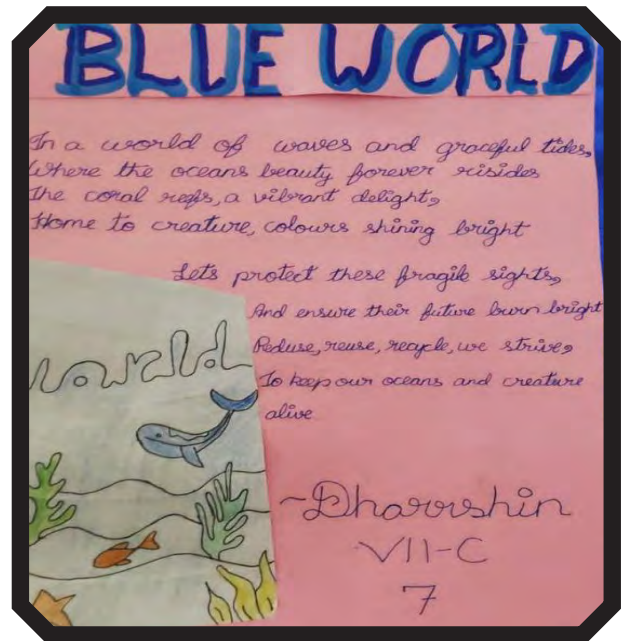 BLUE WORLD
In a world of waves and graceful tides,
Where the oceans beauty forever risides
The coral reefs, a vibrant delight,
Home to creature, colours shining bright
Lets protect these fragile sights,
And ensure their future burn bright
Reduse, reuse, recycle, we strive,
To keep our oceans and creature
alive
World
~Dharrshin
VII-C
7